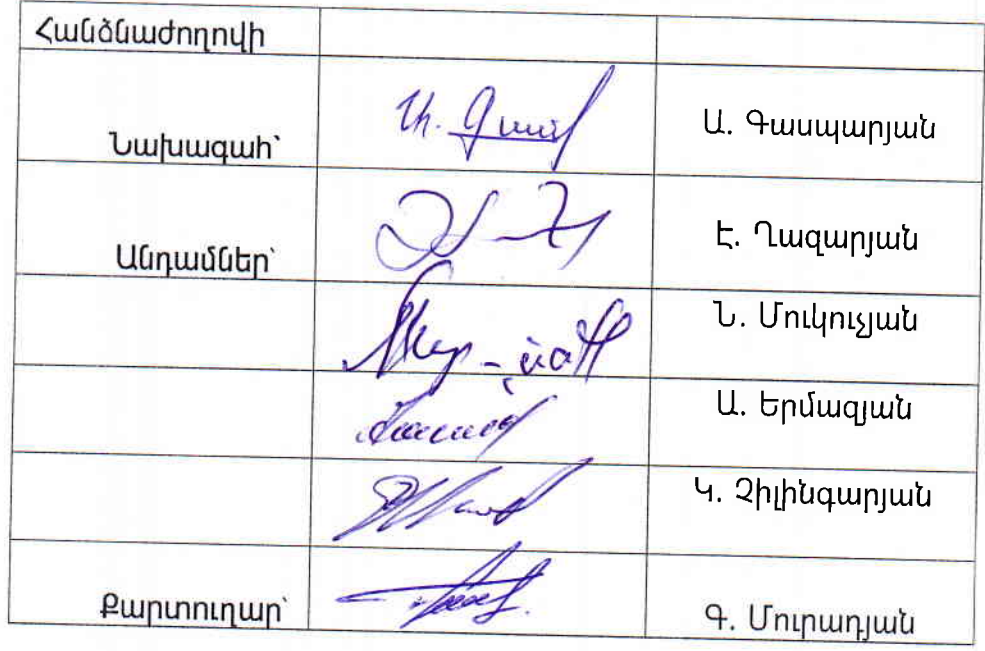 Հանձնաժողովի
Նախագահ՝ Ա. Գասպարյան
Անդամներ՝ Է. Ղազարյան
Ն. Մուկուչյան
Ա. Երմազյան
Կ. Չիլինգարյան
Քարտուղար՝ Գ. Մուրադյան